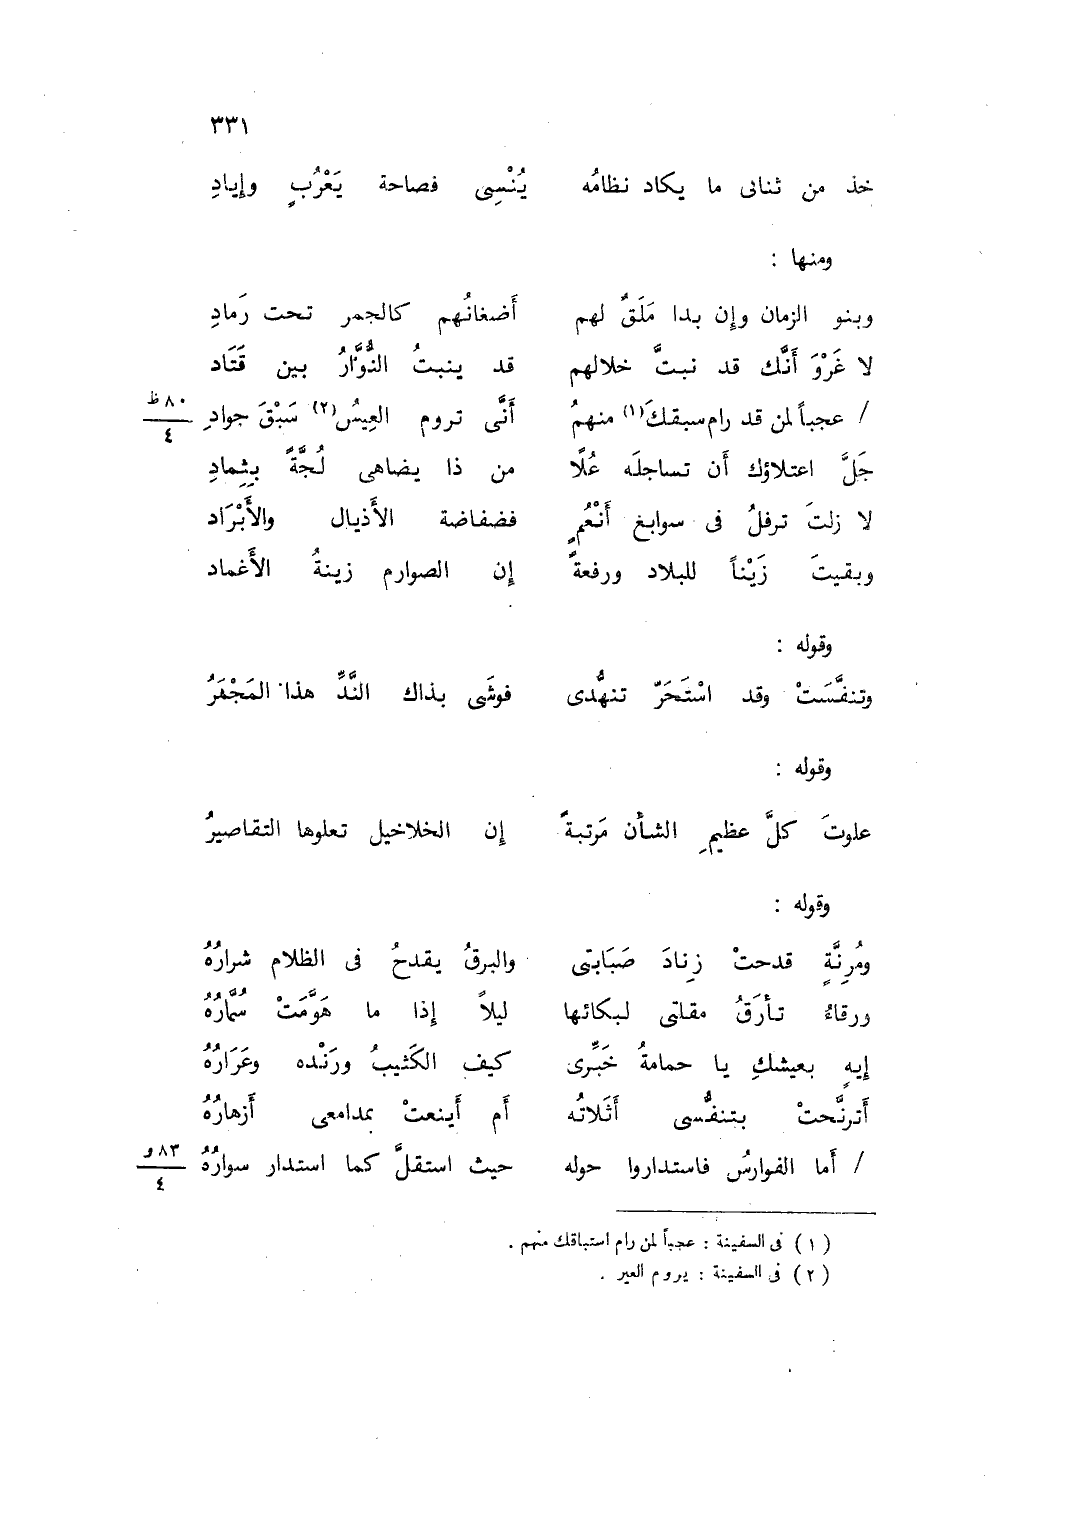 ٣٣١
خذ من ثنائى ما يكاد نظامُه يُنْسِى فصاحة يَعْرُبٍ وإيادِ
ومنها :
وبنو الزمان وإن بدا مَلَقٌ لهم أَضغانُهم كالجمر تحت رَمادِ
لا غَرْوَ أَنَّك قد نبتَّ خلالهم قد ينبتُ النُّوَّارُ بين قَتَاد
/ عجباً لمن قد رام سبقكَ(١) منهمُ أَنَّى تروم العِيسُ(٢) سَبْقَ جوادِ ٨٠ ظ
٤
جَلَّ اعتلاؤك أَن تساجلَه عُلًا من ذا يضاهى لُجَّةً بِثِمادِ
لا زلتَ ترفلُ فى سوابغ أَنْعُمٍ فضفاضة الأَذيال والأَبْرَاد
وبقيتَ زَيْناً للبلاد ورفعةً إِن الصوارم زينةُ الأَغماد
وقوله :
وتنفَّسَتْ وقد اسْتَحَرّ تنهُّدى فوشَى بذاك النَّدِّ هذا المَجْمَرُ
وقوله :
علوتَ كلَّ عظيمِ الشأن مَرتبةً إِن الخلاخيل تعلوها التقاصيرُ
وقوله :
ومُرِنَّةٍ قدحتْ زِنادَ صَبَابتى والبرقُ يقدحُ فى الظلام شرارُهُ
ورقاءُ تأرَقُ مقلتى لبكائها ليلاً إِذا ما هَوَّمَتْ سُمَّارُهُ
إِيهٍ بعيشكِ يا حمامةُ خَبِّرى كيف الكَثيبُ ورَنْده وعَرَارُهُ
أَترنَّحتْ بتنفُّسى أَثَلاتُه أَم أَينعتْ بمدامعى أَزهارُهُ
/ أَما الفوارسُ فاستداروا حوله حيث استقلَّ كما استدار سوارُهُ ٨٣ و
٤
( ١ ) فى السفينة : عجباً لمن رام استباقك منهم .
( ٢ ) فى السفينة : يروم العير .